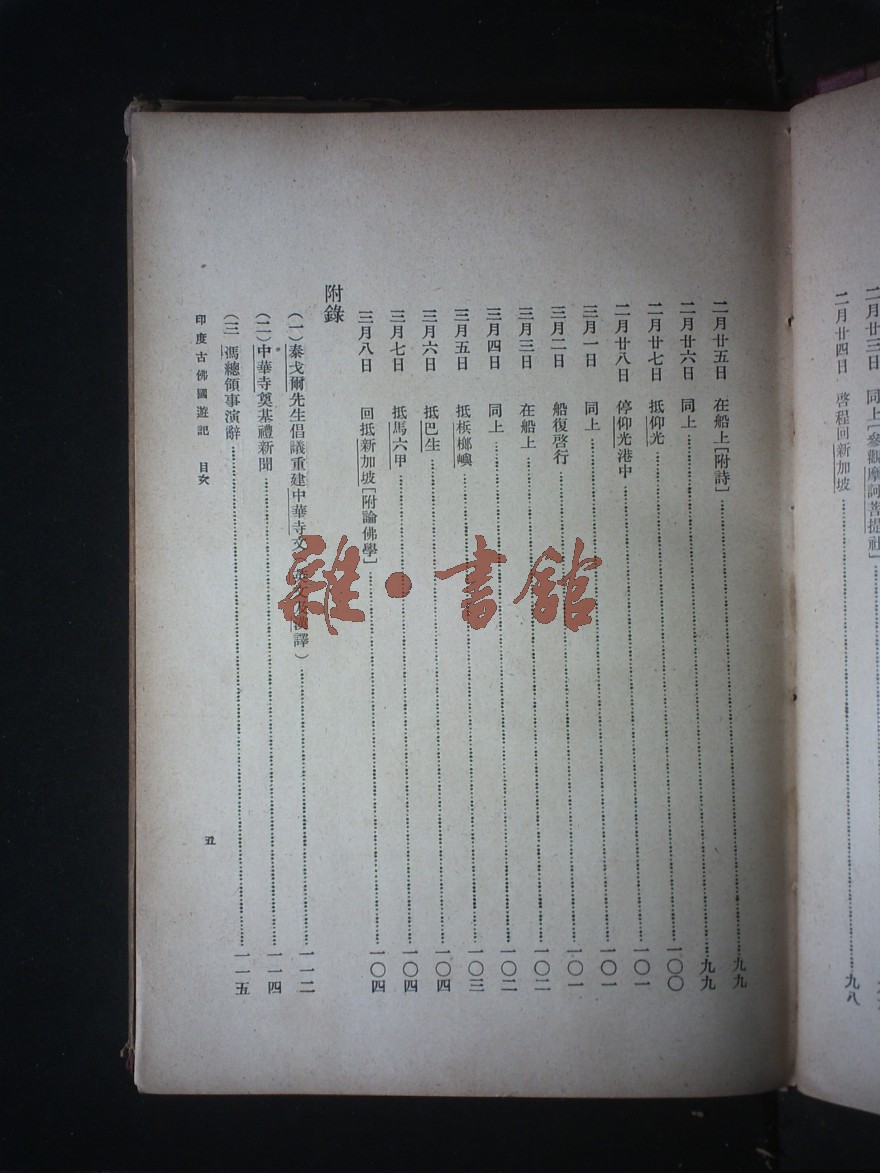 二月廿三日　同上［參觀摩訶菩提社］
二月廿四日　啓程回新加坡…………九八
二月廿五日　在船上［附詩］…………九九
二月廿六日　同上…………九九
二月廿七日　抵仰光…………一〇〇
二月廿八日　停仰光港中…………一〇一
三月一日　同上…………一〇一
三月二日　船復啓行…………一〇一
三月三日　在船上…………一〇二
三月四日　同上…………一〇二
三月五日　抵檳榔嶼…………一〇三
三月六日　抵巴生…………一〇四
三月七日　抵馬六甲…………一〇四
三月八日　回抵新加坡［附論佛學］…………一〇四
附錄
（一）泰戈爾先生倡議重建中華寺文（英文及漢譯）…………一一二
（二）中華寺奠基禮新聞…………一一四
（三）馮總領事演辭…………一一五
印度古佛國遊記　目次
五
雜·書館